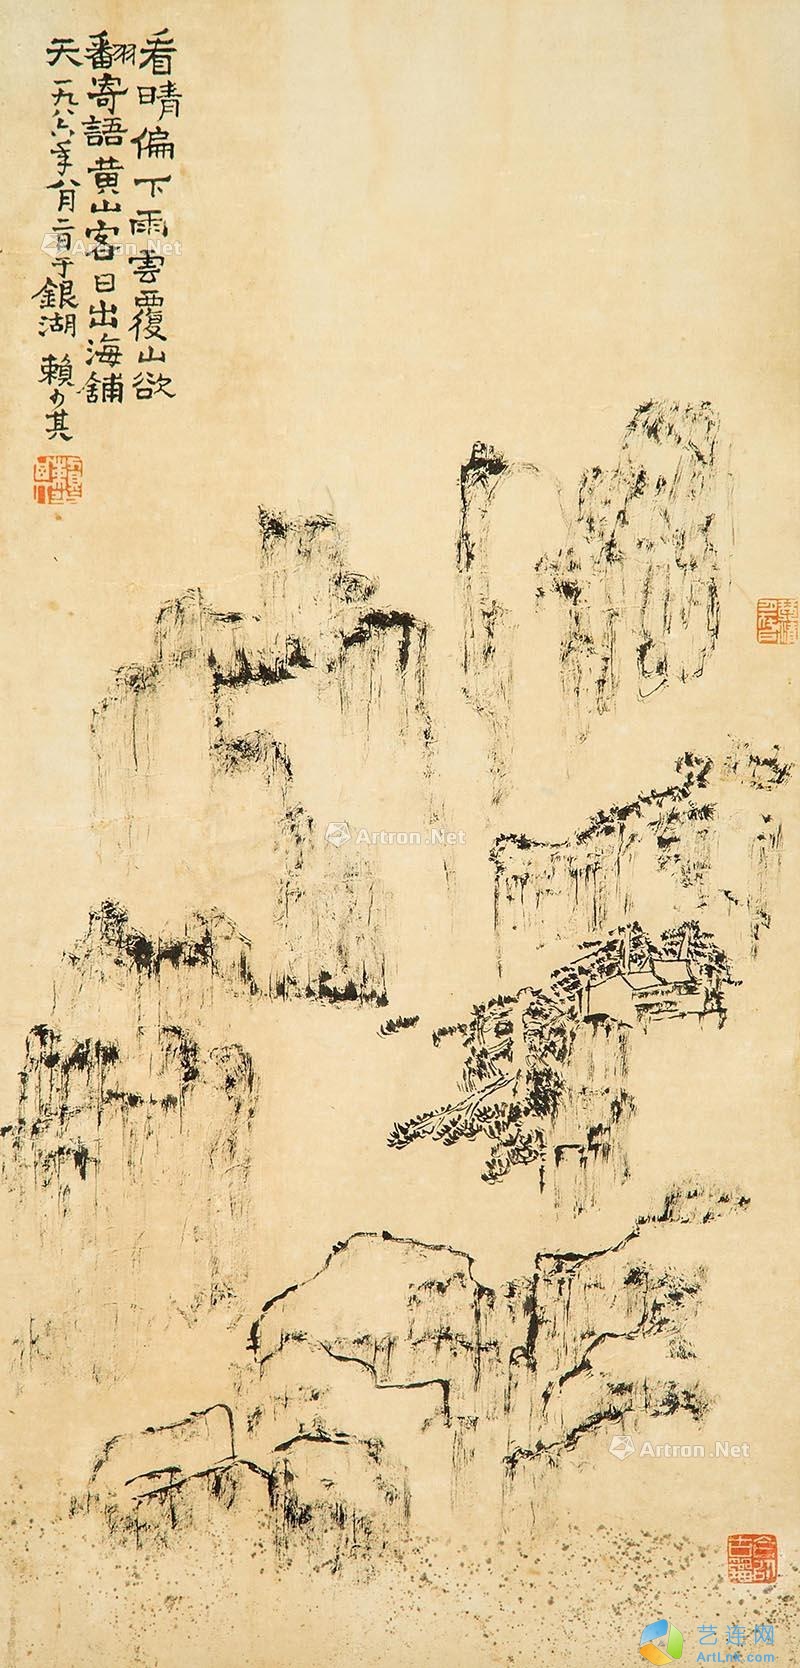 看晴偏下雨雲覆山欲
翻寄語黄山客日出海鋪
天一九八六年八月二日于銀湖 賴少其
Artron.Net
Artron.Net
Artron.Net
艺连网
ArtLnk.com